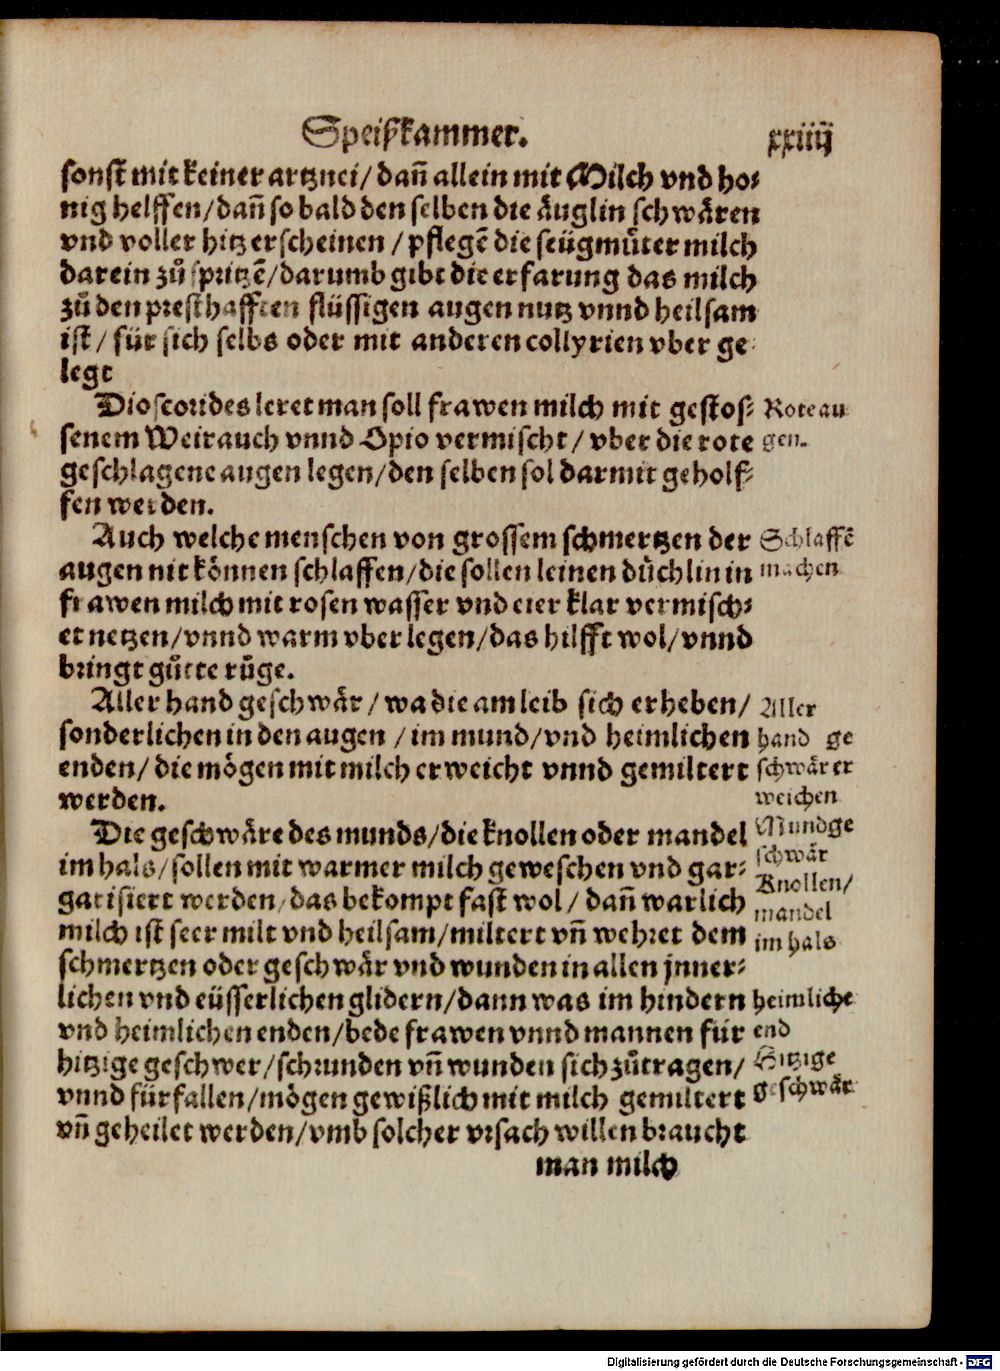 Speißkammer. xxiiij
sonst mit keiner artznei/ dañ allein mit Milch vnd ho-
nig helffen/ dañ so bald den selben die äuglin schwären
vnd voller hitz erscheinen / pflegē die seügmůter milch
darein zů spritzē/ darumb gibt die erfarung das milch
zů den presthafften flüssigen augen nutz vnnd heilsam
ist / für sich selbs oder mit anderen collyrien vber ge-
legt
Dioscorides leret man soll frawen milch mit gestos-
senem Weirauch vnnd Opio vermischt / vber die rote
geschlagene augen legen/ den selben sol darmit geholf-
fen werden.
Roteau
gen.
Auch welche menschen von grossem schmertzen der
augen nit können schlaffen/ die sollen leinen düchlin in
frawen milch mit rosen wasser vnd eier klar vermisch-
et netzen/ vnnd warm vber legen/ das hilfft wol/ vnnd
bringt gůtte růge.
Schlaffē
machen
Aller hand geschwär / wa die am leib sich erheben/
sonderlichen in den augen / im mund/ vnd heimlichen
enden/ die mögen mit milch erweicht vnnd gemiltert
werden.
Aller
hand ge
schwär er
weichen
Die geschwäre des munds/ die knollen oder mandel
im hals/ sollen mit warmer milch geweschen vnd gar-
garisiert werden/ das bekompt fast wol / dañ warlich
milch ist seer milt vnd heilsam/ miltert vñ wehret dem
schmertzen oder geschwär vnd wunden in allen jnner-
lichen vnd eüsserlichen glidern/ dann was im hindern
vnd heimlichen enden/ bede frawen vnnd mannen für
hitzige geschwer/ schrunden vñ wunden sich zůtragen/
vnnd fürfallen/ mögen gewißlich mit milch gemiltert
vñ geheilet werden/ vmb solcher vrsach willen braucht
man milch
Mundge
schwär
Knollen/
mandel
im hals
heimliche
end
Hitzige
geschwär
Digitalisierung gefördert durch die Deutsche Forschungsgemeinschaft - DFG